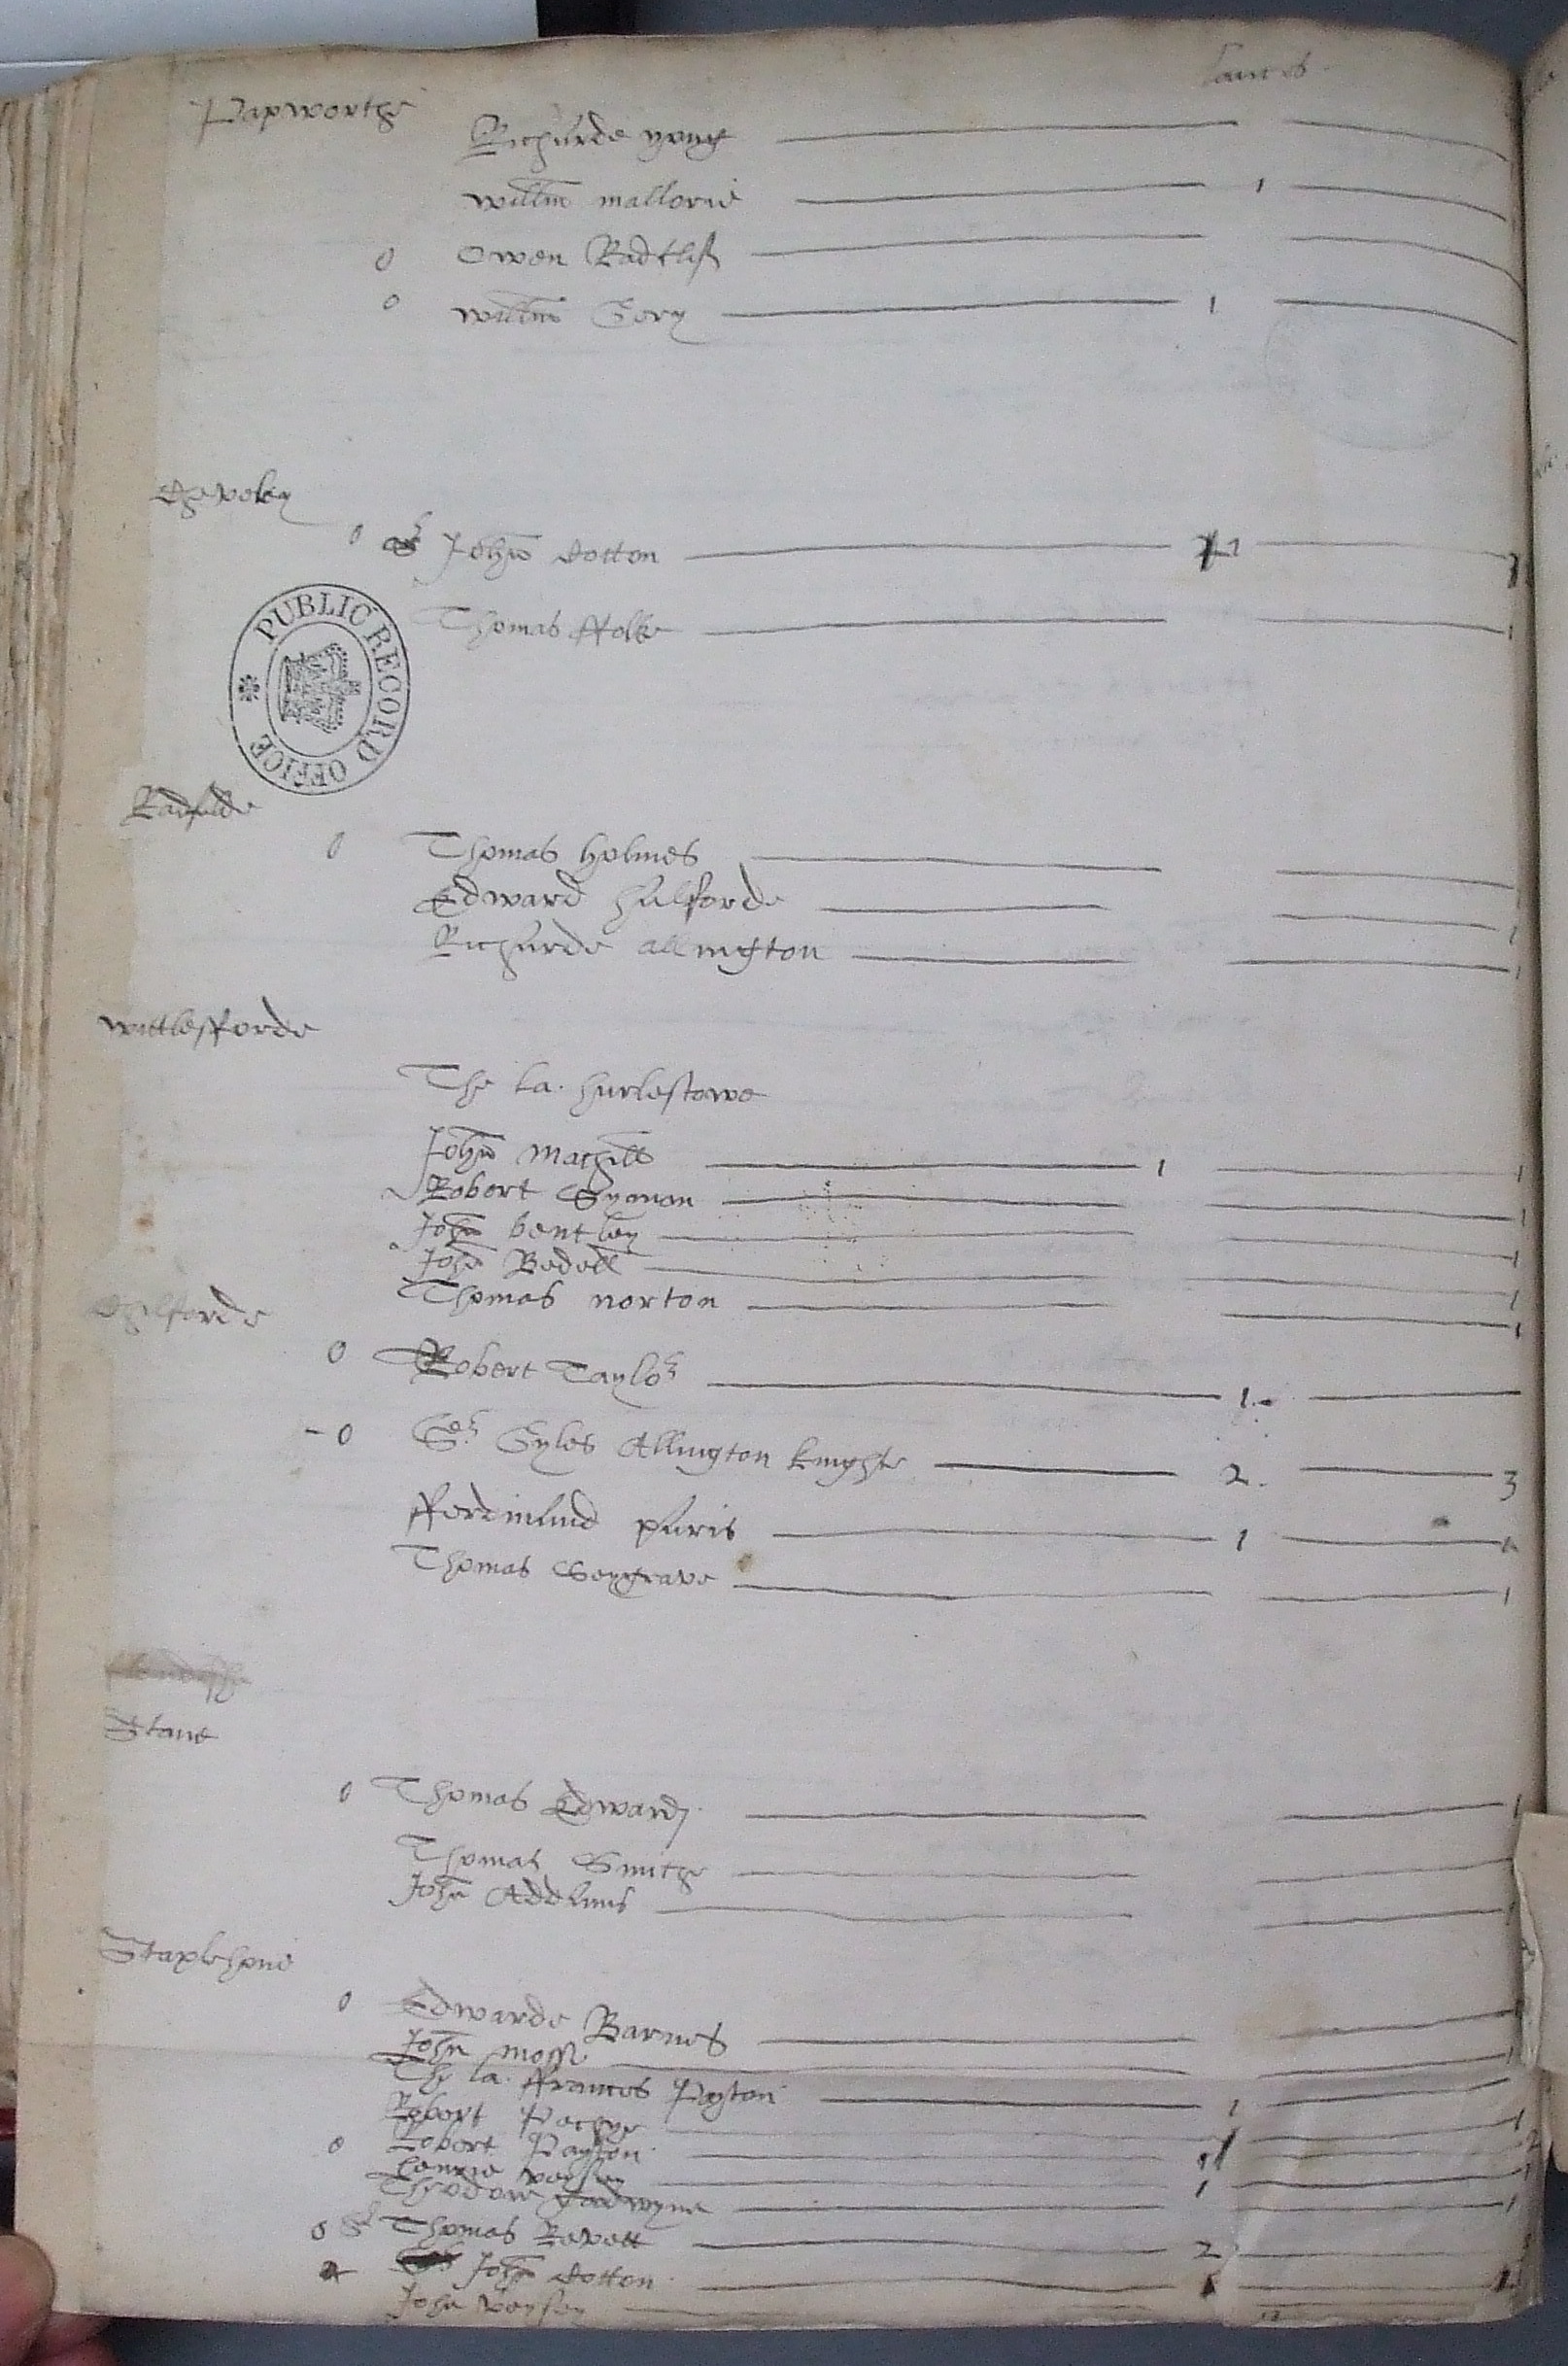 Launces
Papworthe
Richarde yong
Willm mallorie 1
0 Owen Radclif
0 Willm Gery 1
Cheveley
0 Sr John Cotton 1
Thomas ffolke 1
PUBLIC RECORD OFFICE
Radfilde
0 Thomas holmes
Edward halforde 1
Richarde allington 1
Wittlesfforde
The La. hurlestowe
John Machill 1 1
Robert Symon 1
John bentley 1
John Bedell 1
Thomas norton 1
Chilforde
0 Robert Taylor 1
0 Sr Gyles Allington knyght 2 3
fferdinand paris 1
Thomas Seygrave 1
Stane
0 Thomas Edwards 1
Thomas Smithe
John Addams
Staplehoue
0 Edwarde Barnes
John mosse 1
The La. ffrances Payton 1
Robert Pachye 1
0 Robert Payton 1 2
veysey 1 1
Thodore Goodwyne 1
0 Sr Thomas Revett 2
John Cotton
John Veysey